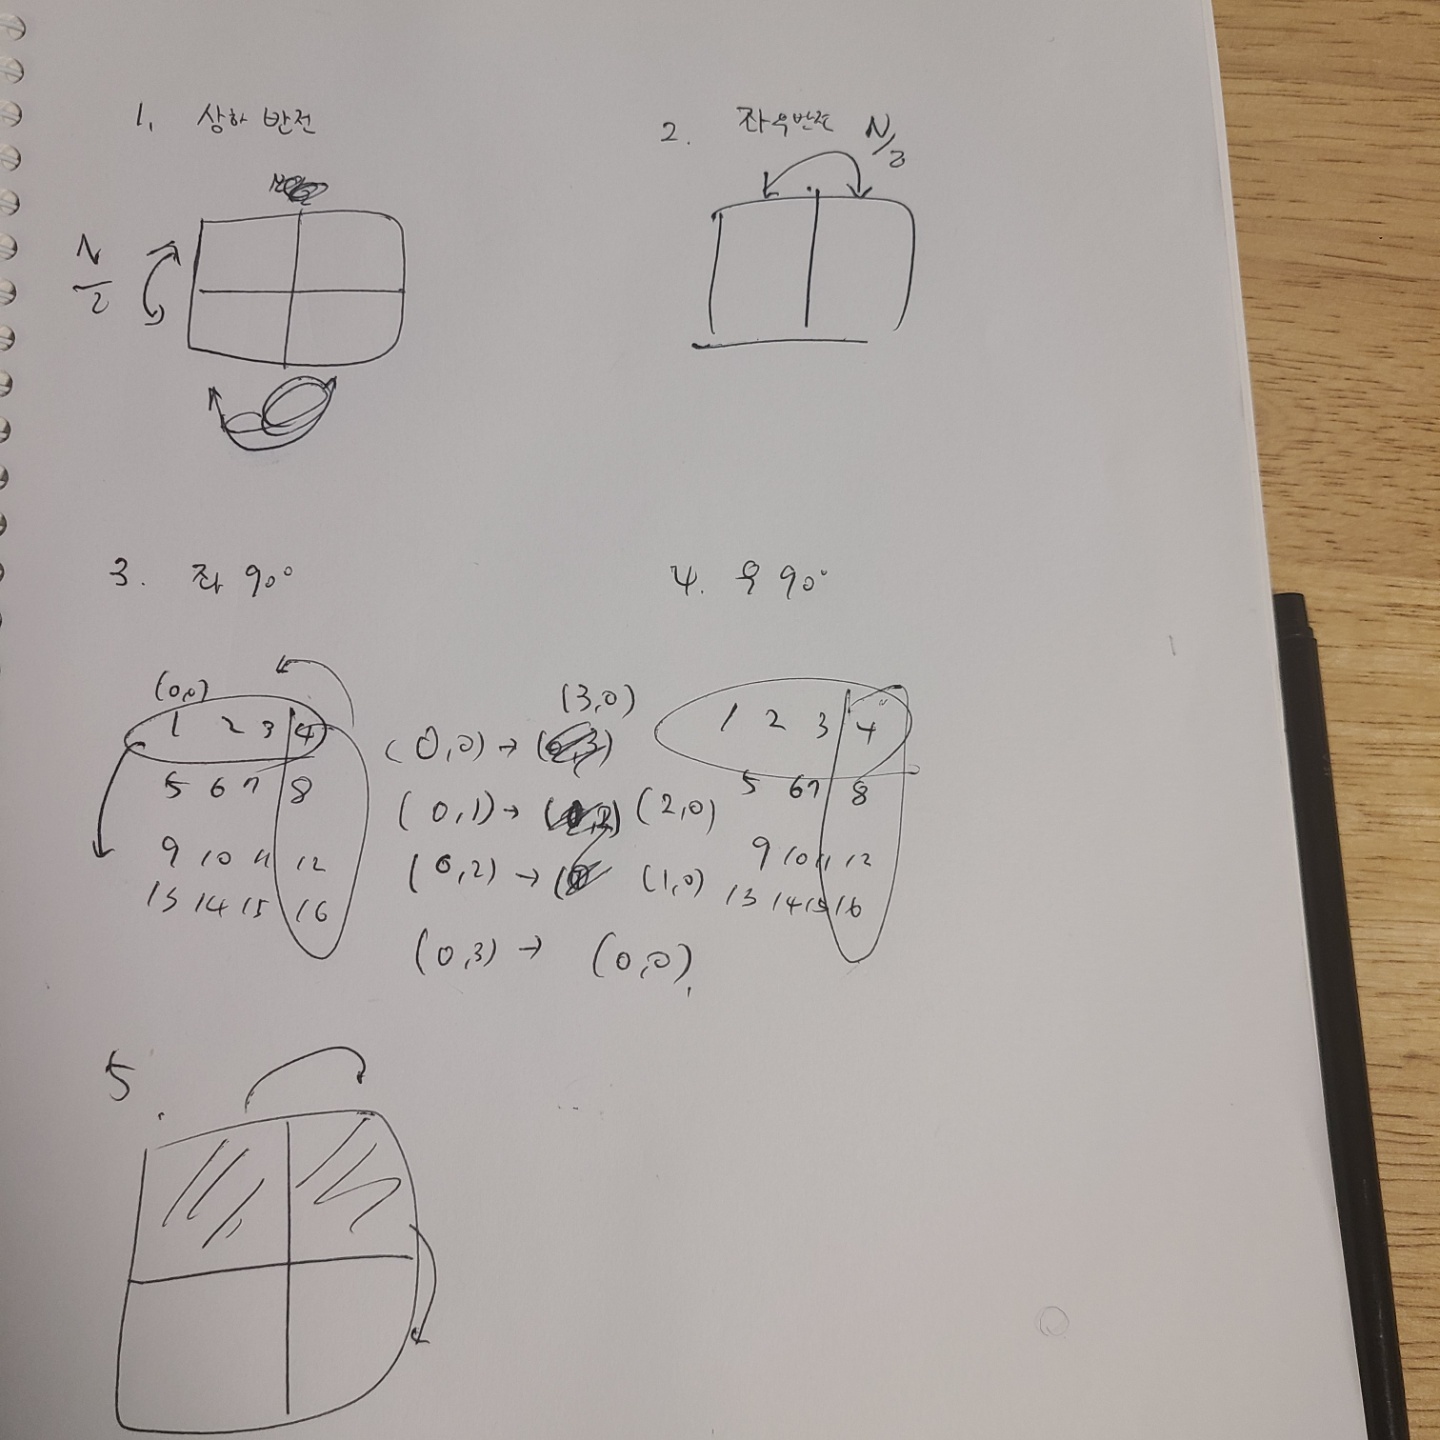 1. 상하 반전
N/2
2. 좌우반전 N/2
3. 좌 90°
(0,0)
1 2 3 4
5 6 7 8
9 10 11 12
13 14 15 16
(3,0)
(0,0) →
(0,1) → (2,0)
(0,2) → (1,0)
(0,3) → (0,0)
4. 우 90°
1 2 3 4
5 6 7 8
9 10 11 12
13 14 15 16
5.